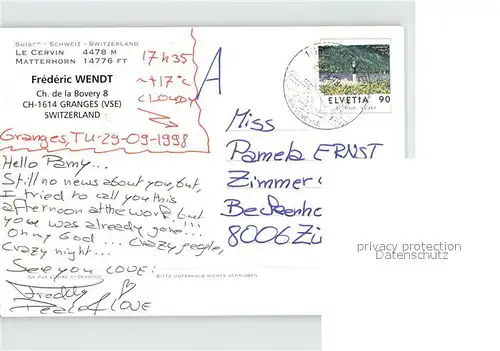 Suisse - Schweiz - Switzerland
Le Cervin 4478 m
Matterhorn 14776 ft
Frédéric WENDT
Ch. de la Bovery 8
CH-1614 GRANGES (VSE)
SWITZERLAND
17h35
~+17°C
CLOUDY
Granges, TU-29-09-1998
A
HELVETIA 90
Hello Pamy...
Still no news about you, but,
I tried to call you this
afternoon at the work but
your was already gone!!!
Oh my God... Crazy people,
Crazy night...
See you LOVE!
Freddy
Peace & LOVE
NE PAS ÉCRIRE CI-DESSOUS
BITTE UNTERHALB NICHTS SCHREIBEN
Miss
Pamela ERNST
Zimmer
Beckenh
8006 Zü
privacy protection
Datenschutz